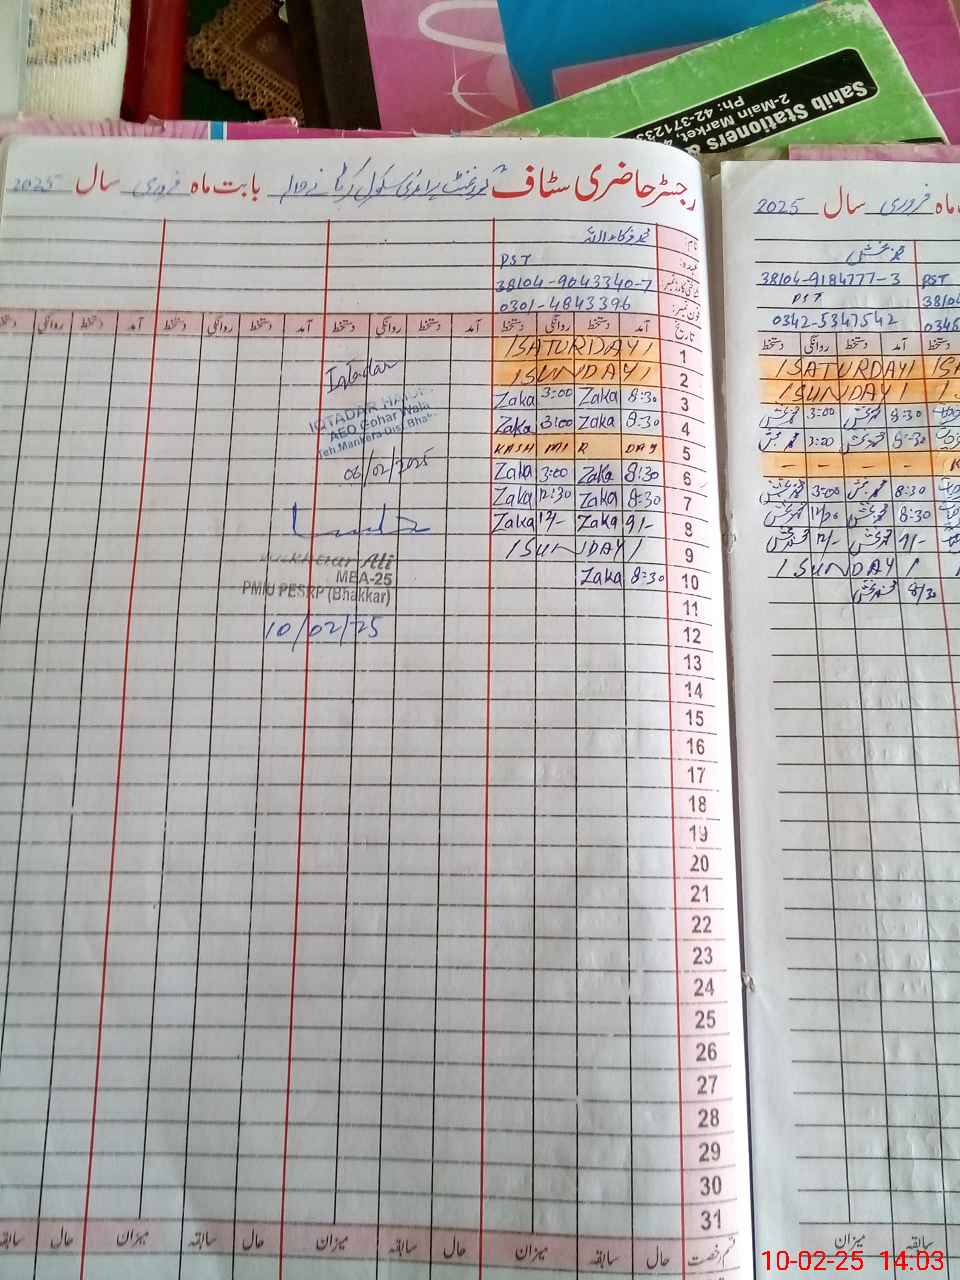 Sahib Stationers &
2-Main Market,
Ph: 42-371233
رجسٹر حاضری سٹاف گورنمنٹ پرائمری سکول بابت ماہ فروری سال 2025
نام: محمد ذکاء اللہ
عہدہ: PST
شناختی کارڈ نمبر: 38104-9043340-7
فون نمبر: 0301-4843396
تاریخ آمد دستخط روانگی دستخط آمد دستخط روانگی دستخط آمد دستخط روانگی دستخط
1 SATURDAY
2 SUNDAY
3 8:30 Zaka 3:00 Zaka
4 8:30 Zaka 3:00 Zaka
5 KASHMIR DAY
6 8:30 Zaka 3:00 Zaka
7 8:30 Zaka 12:30 Zaka
8 9/- Zaka 12/- Zaka
9 SUNDAY
10 8:30 Zaka
11
12
13
14
15
16
17
18
19
20
21
22
23
24
25
26
27
28
29
30
31
قسم رخصت حال سابقہ میزان حال سابقہ میزان حال سابقہ میزان حال سابقہ
Iqtadar
IQTADAR HAI
AEO Gohar Wala
Teh.Mankera Dist.Bhak
06/02/2025
Ali
MEA-25
PMIU PESRP (Bhakkar)
10/02/25
ماہ فروری سال 2025
محمد بخش
38104-9184777-3 PST
PST 38104
0342-5347542 0346
آمد دستخط روانگی دستخط
SATURDAY
SUNDAY
8:30 محمد بخش 3:00 محمد بخش
8:30 محمد بخش 3:00 محمد بخش
- - - -
8:30 محمد بخش 3:00 محمد بخش
8:30 محمد بخش 12/30 محمد بخش
9/- محمد بخش 12/- محمد بخش
SUNDAY
8/30 محمد بخش
سابقہ میزان
10-02-25 14:03